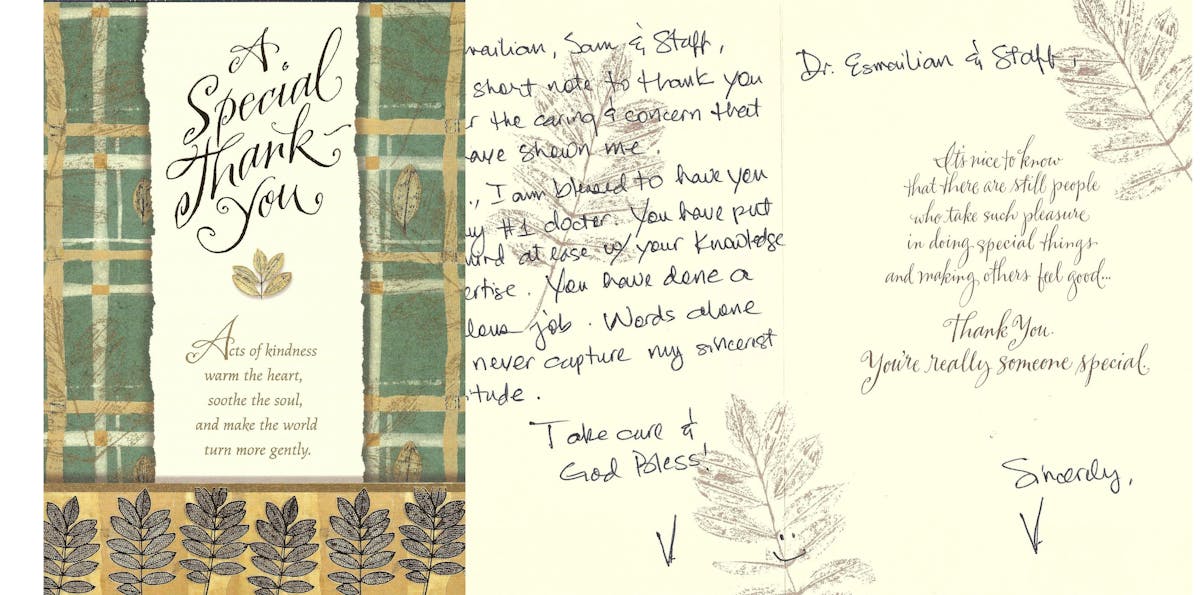 A
Special
Thank
You
Acts of kindness
warm the heart,
soothe the soul,
and make the world
turn more gently.
mailian, Sam & Staff,
short note to thank you
r the caring & concern that
ave shown me.
., I am blessed to have you
y #1 doctor. You have put
ind at ease w/ your knowledge
ertise. You have done a
lous job. Words alone
never capture my sincerist
itude.
Take care &
God Bless!
V
Dr. Esmailian & Staff,
It's nice to know
that there are still people
who take such pleasure
in doing special things
and making others feel good...
Thank You.
You're really someone special.
Sincerely,
V